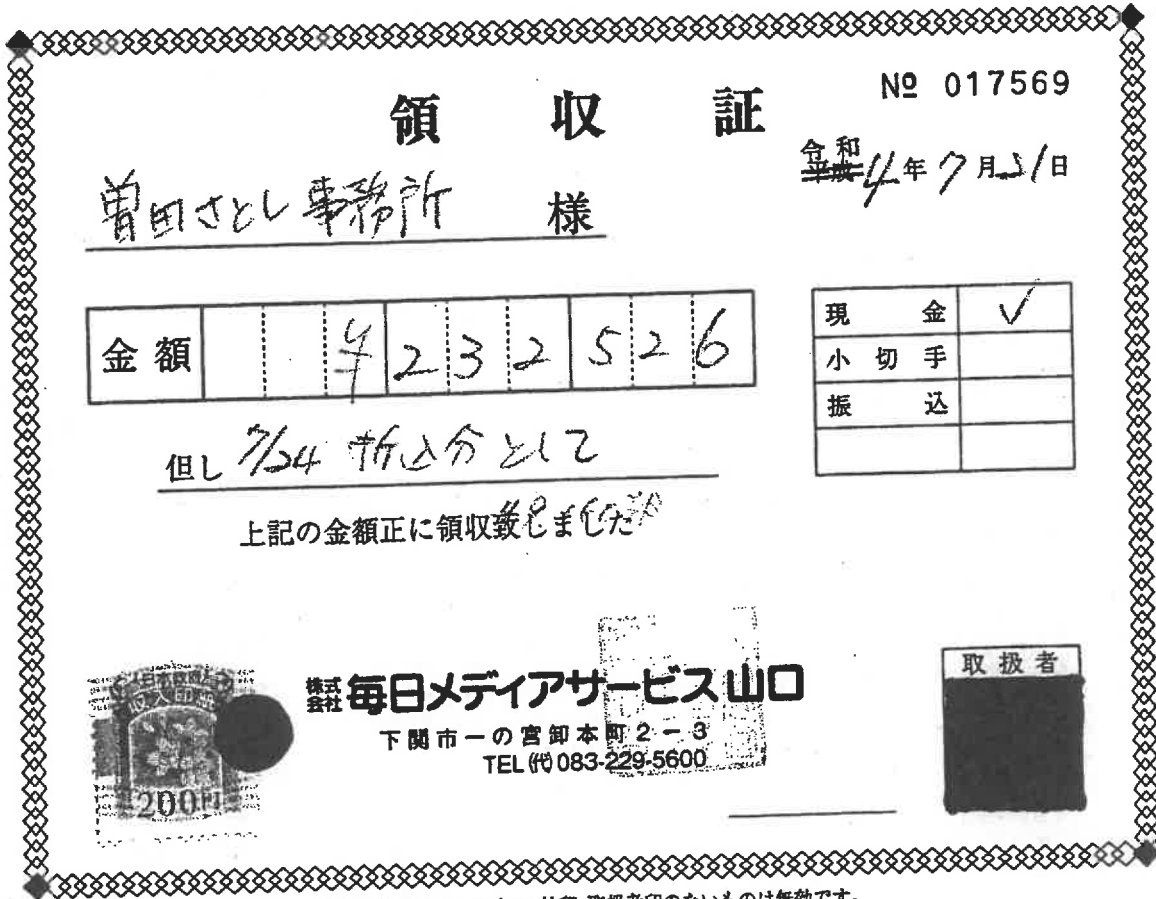 領収証
№ 017569
令和 平成 4年7月21日
曽田さとし事務所 様
金額 ¥232526
現金 ✓
小切手
振込
但し 7/24 折込分として
上記の金額正に領収致しました
日本政府
収入印紙
200円
株式会社 毎日メディアサービス山口
下関市一の宮卸本町2-3
TEL(代)083-229-5600
取扱者
取扱者印のないものは無効です。